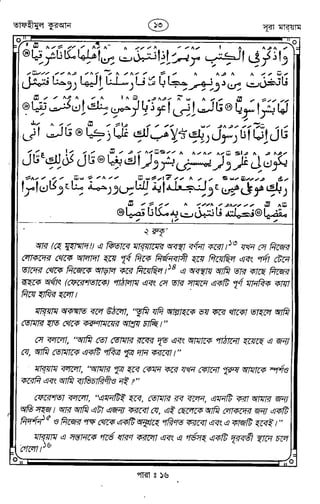 তাফহীমুল কুরআন
১৩
সূরা মারয়াম
وَاذْكُرْ فِي الْكِتٰبِ مَرْيَمَ اِذِ انْتَبَذَتْ مِنْ اَهْلِهَا مَكَانًا شَرْقِيًّا
فَاتَّخَذَتْ مِنْ دُوْنِهِمْ حِجَابًا فَاَرْسَلْنَا اِلَيْهَا رُوْحَنَا فَتَمَثَّلَ
لَهَا بَشَرًا سَوِيًّا قَالَتْ اِنِّيْ اَعُوْذُ بِالرَّحْمٰنِ مِنْكَ اِنْ كُنْتَ تَقِيًّا
قَالَ اِنَّمَا اَنَا رَسُوْلُ رَبِّكِ لِاَهَبَ لَكِ غُلٰمًا زَكِيًّا قَالَتْ اَنّٰى
يَكُوْنُ لِيْ غُلٰمٌ وَّلَمْ يَمْسَسْنِيْ بَشَرٌ وَّلَمْ اَكُ بَغِيًّا قَالَ كَذٰلِكِ قَالَ
رَبُّكِ هُوَ عَلَيَّ هَيِّنٌ وَلِنَجْعَلَهٗ اٰيَةً لِّلنَّاسِ وَرَحْمَةً مِّنَّا وَكَانَ اَمْرًا
مَّقْضِيًّا فَحَمَلَتْهُ فَانْتَبَذَتْ بِهٖ مَكَانًا قَصِيًّا
২ রুকূ'
আর (হে মুহাম্মাদ!) এ কিতাবে মারয়ামের অবস্থা বর্ণনা করো।১৩ যখন সে নিজের
লোকদের থেকে আলাদা হয়ে পূর্ব দিকে নির্জনবাসী হয়ে গিয়েছিল এবং পর্দা টেনে
তাদের থেকে নিজেকে আড়াল করে নিয়েছিল।১৪ এ অবস্থায় আমি তার কাছে নিজের
রূহকে অর্থাৎ (ফেরেশতাকে) পাঠালাম এবং সে তার সামনে একটি পূর্ণ মানবিক কায়া
নিয়ে হাযির হলো।
মারয়াম অকস্মাত বলে উঠলো, "তুমি যদি আল্লাহকে ভয় করে থাকো তাহলে আমি
তোমার হাত থেকে করুণাময়ের আশ্রয় চাচ্ছি।"
সে বললো, "আমি তো তোমার রবের দূত এবং আমাকে পাঠানো হয়েছে এ জন্য
যে, আমি তোমাকে একটি পবিত্র পুত্র দান করবো।"
মারয়াম বললো, "আমার পুত্র হবে কেমন করে যখন কোনো পুরুষ আমাকে স্পর্শও
করেনি এবং আমি ব্যভিচারিণীও নই?"
ফেরেশতা বললো, "এমনটিই হবে, তোমার রব বলেন, এমনটি করা আমার জন্য
অতি সহজ। আর আমি এটা এজন্য করবো যে, এই ছেলেকে আমি লোকদের জন্য একটি
নিদর্শন১৫ ও নিজের পক্ষ থেকে একটি অনুগ্রহে পরিণত করবো এবং এ কাজটি হবেই।"
মারয়াম এ সন্তানকে গর্ভে ধারণ করলো এবং এ গর্ভসহ একটি দূরবর্তী স্থানে চলে
গেলো।১৬
পারা : ১৬